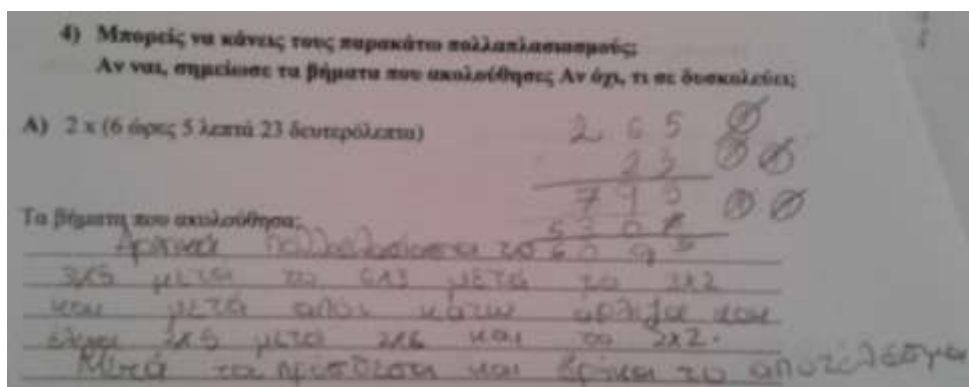 4) Μπορείς να κάνεις τους παρακάτω πολλαπλασιασμούς;
Αν ναι, σημείωσε τα βήματα που ακολούθησες Αν όχι, τι σε δυσκολεύει;
Α) 2 x (6 ώρες 5 λεπτά 23 δευτερόλεπτα)
2 6 5
2 3
7 9 5
Τα βήματα που ακολούθησα:
5 3 0
Αρχικά πολλαπλασίασα το
6 0 9 5
3x5 μετά το 6x3 μετά το 3x2
και μετά από κάτω και
έκανα 2x5 μετά 2x6 και το 2x2.
Μετά τα πρόσθεσα και βρήκα το αποτέλεσμα